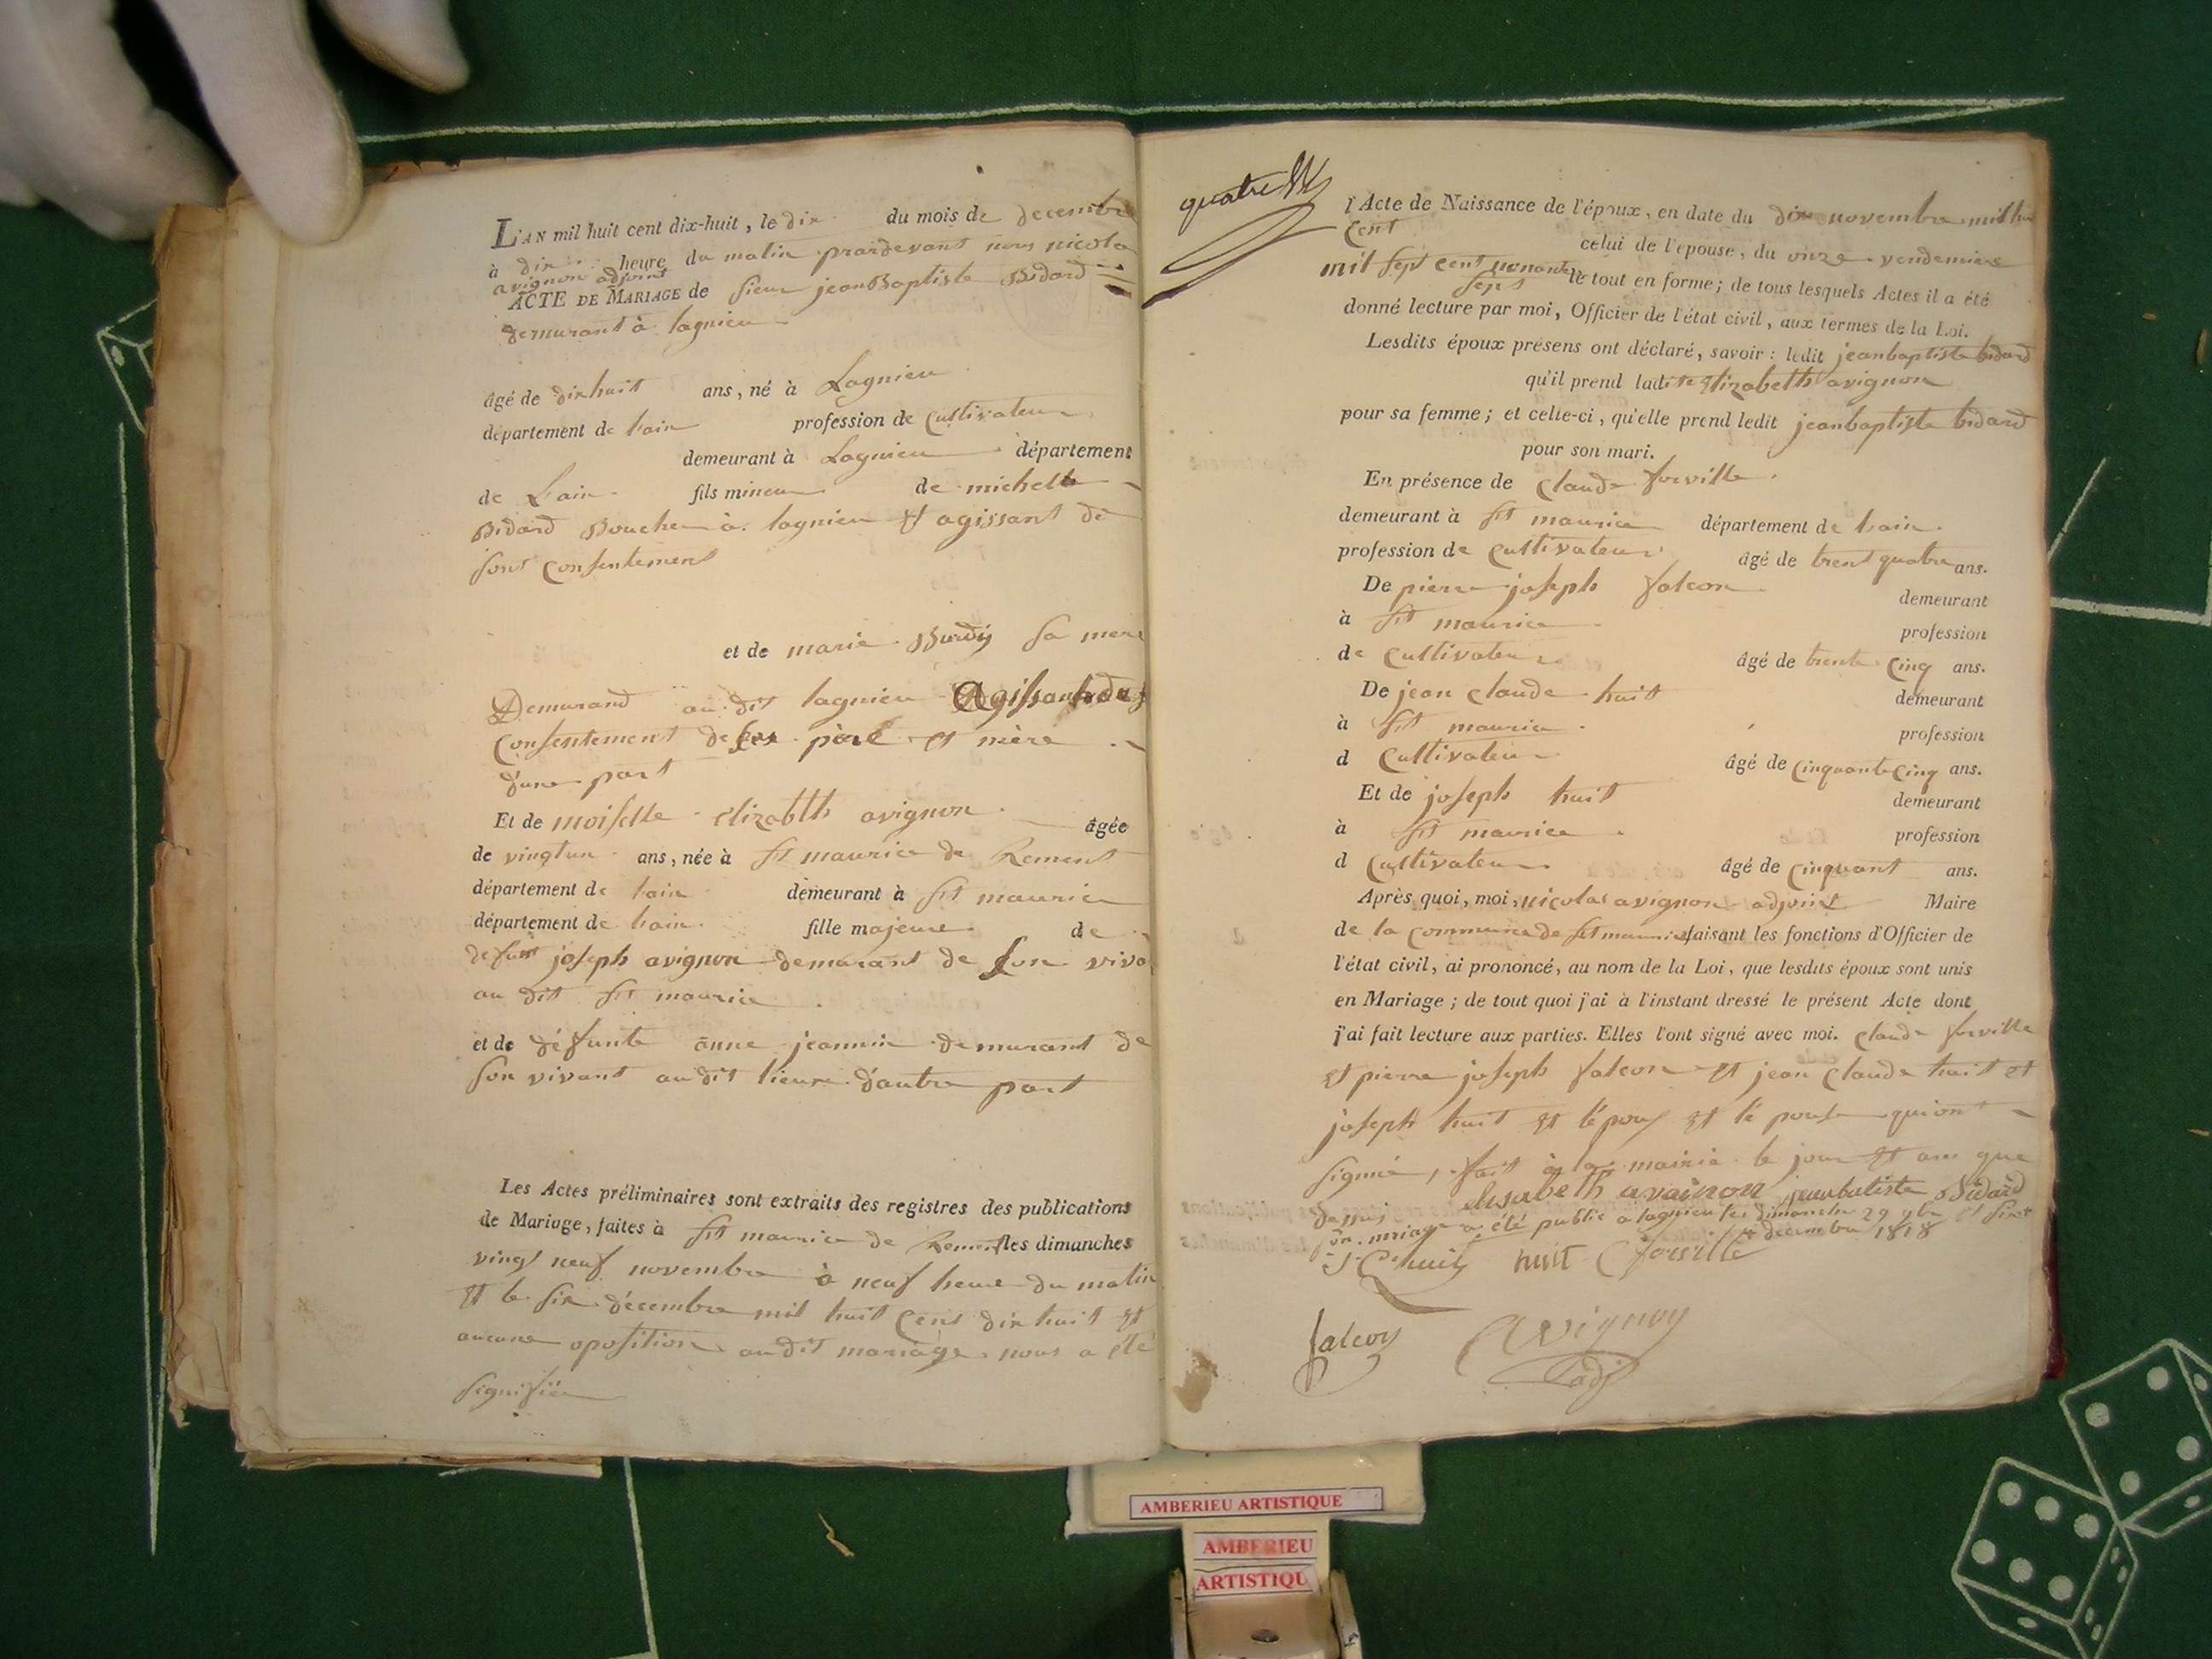 L'AN mil huit cent dix-huit, le dix du mois de decembre
à dix heure du matin prardevant nous nicola
avignon adjoint
ACTE DE MARIAGE de sieur jean Baptiste Bidard
demurant à lagnieu
âgé de dixhuit ans, né à Lagnieu
département de l'ain profession de cultivateur
demeurant à Lagnieu département
de L'ain fils mineur de michelle
Bidard Boucher à lagnieu et agissant de
sont consentement
et de marie Burdy sa mere
Demurand au dit lagnieu Agissant du
consentement de ses père et mère
d'une part
Et de moiselle elizabth avignon âgée
de vingtun ans, née à st maurice de Rement
département de l'ain demeurant à st maurice
département de l'ain fille majeure de
defunt joseph avignon demurant de son viva
au dit st maurice
et de défunte anne jeannin demurant de
son vivant au dit lieux d'autre part
Les Actes préliminaires sont extraits des registres des publications
de Mariage, faites à st maurice de Rement les dimanches
vingt neuf novembre à neuf heure du matin
et le six décembre mil huit cent dix huit et
aucune oposition au dit mariage nous a été
signifiée
quatre
l'Acte de Naissance de l'époux, en date du dix novembre mil hui
cent celui de l'épouse, du onze vendemiere
mil sept cent nonante
sept le tout en forme; de tous lesquels Actes il a été
donné lecture par moi, Officier de l'état civil, aux termes de la Loi.
Lesdits époux présens ont déclaré, savoir: ledit jeanbaptiste bidard
qu'il prend ladite Elizabeth avignon
pour sa femme; et celle-ci, qu'elle prend ledit jeanbaptiste bidard
pour son mari.
En présence de claude forville
demeurant à st maurice département de l'ain
profession de cultivateur âgé de trent quatre ans.
De pierre joseph falcon demeurant
à st maurice profession
de cultivateur âgé de trente cinq ans.
De jean claude huit demeurant
à st maurice profession
d cultivateur âgé de cinquante cinq ans.
Et de joseph huit demeurant
à st maurice profession
d cultivateur âgé de cinquant ans.
Après quoi, moi, nicolas avignon adjoint Maire
de la commune de st maurice faisant les fonctions d'Officier de
l'état civil, ai prononcé, au nom de la Loi, que lesdits époux sont unis
en Mariage; de tout quoi j'ai à l'instant dressé le présent Acte dont
j'ai fait lecture aux parties. Elles l'ont signé avec moi. claude forville
et pierre joseph falcon et jean claude huit et
joseph huit et l'époux et l'épouse qui ont
signié, fait à la mairie le jour et an que
dessus elisabeth avainon jeanbatiste Bidard
son mriage a été publie a lagnieu les dimanche 29 9bre et sixe
decembre 1818
J C huit huit C forville
falcon Avignon
adj
AMBERIEU ARTISTIQUE
AMBERIEU
ARTISTIQU